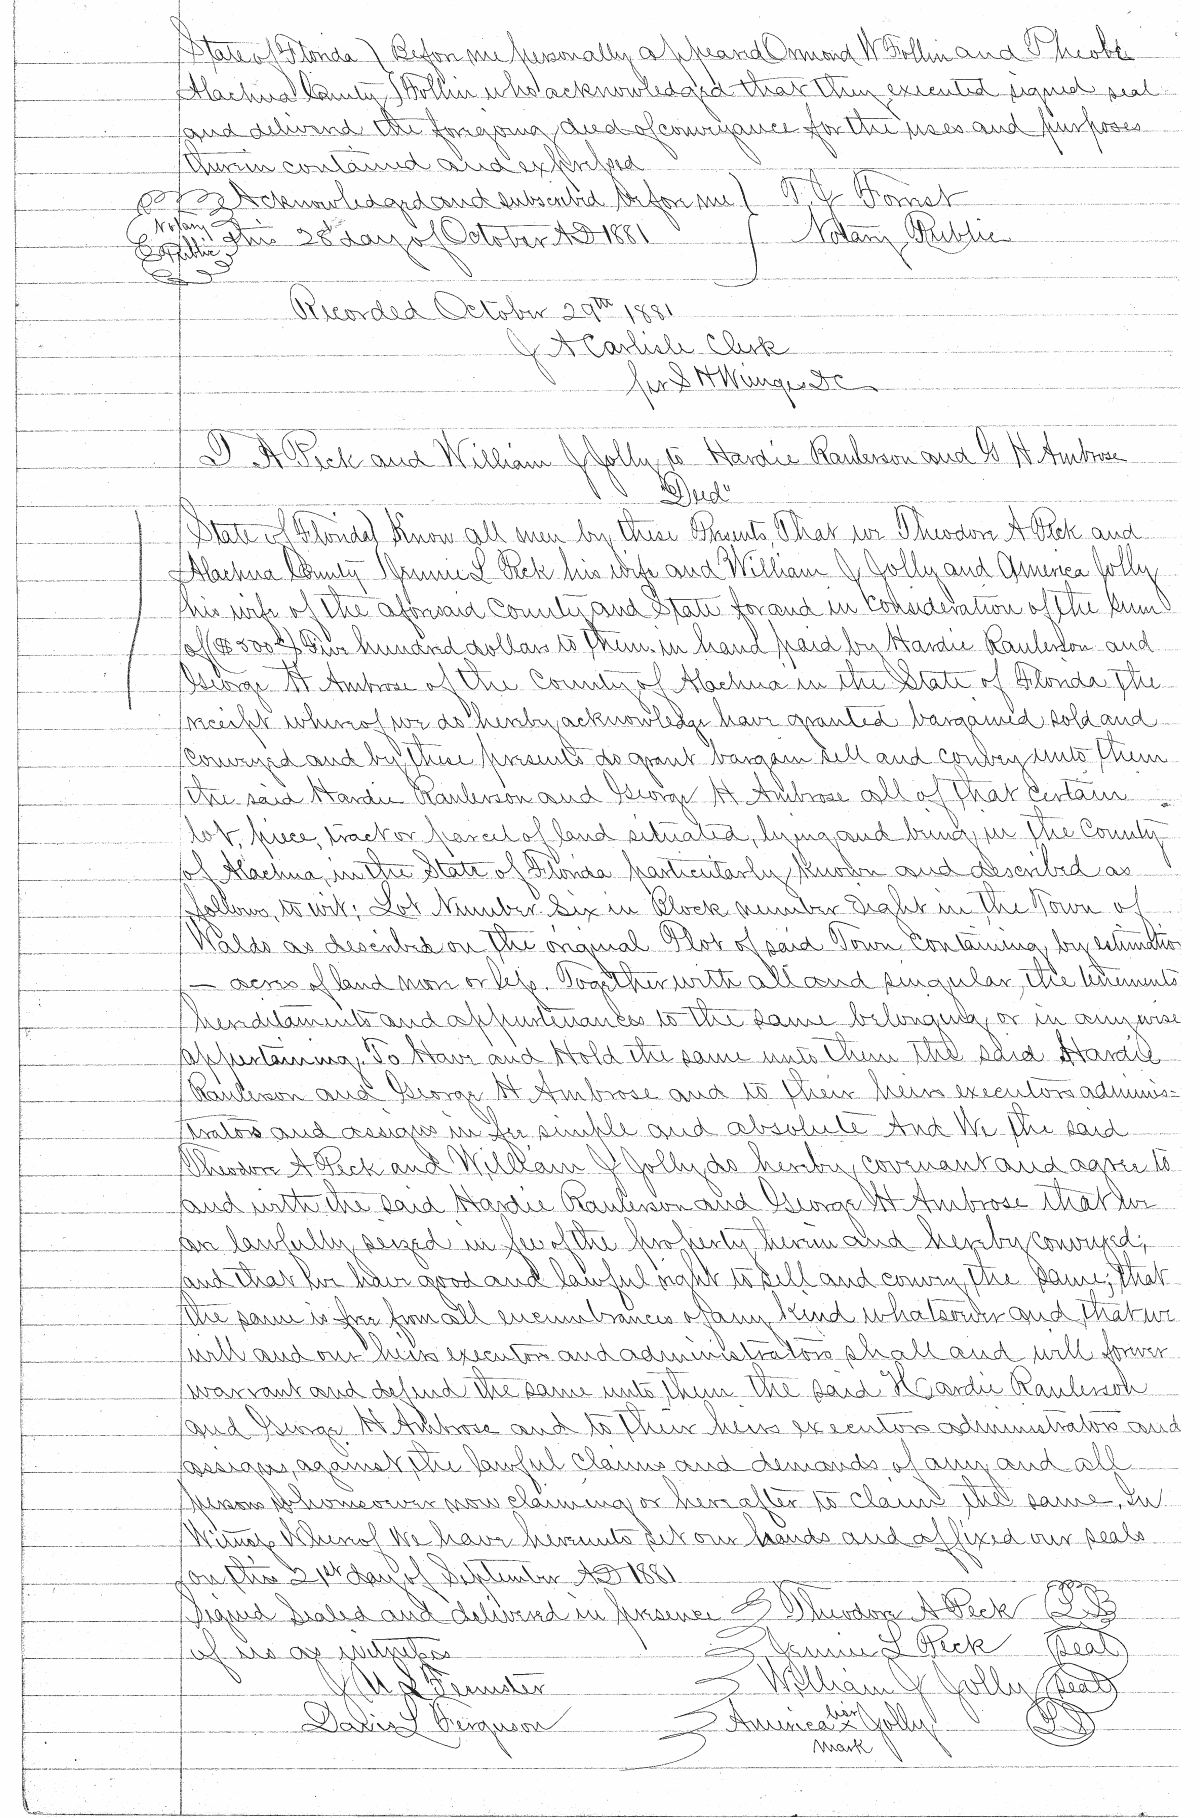 State of Florida } Before me personally appeared Ormond W Follin and Pheobe
Alachua County } Follin who acknowledged that they executed signed seal
and delivered the foregoing deed of conveyance for the uses and purposes
therein contained and expressed
Acknowledged and subscribed before me } Forrest
Notary Public
this 28th day of October AD 1881 } Notary Public
Recorded October 29th 1881
J A Carlisle Clerk
per S H Wienges DC
T A Peck and William J Jolly to Hardie Raulerson and G H Ambrose
"Deed"
State of Florida } Know all men by these Presents, That we Theodore A Peck and
Alachua County } Jennie L Peck his wife and William J Jolly and America Jolly
his wife of the aforesaid County and State for and in consideration of the sum
of ($500) Five hundred dollars to them in hand paid by Hardie Raulerson and
George H Ambrose of the County of Alachua in the State of Florida the
receipt whereof we do hereby acknowledge have granted bargained sold and
conveyed and by these presents do grant bargain sell and convey unto them
the said Hardie Raulerson and George H Ambrose all of that certain
lot, piece, tract or parcel of land situated, lying and being, in the County
of Alachua, in the State of Florida particularly known and described as
follows, to wit; Lot Number Six in Block number Eight in the Town of
Waldo as described on the original Plot of said Town containing by estimation
— acres of land more or less. Together with all and singular, the tenements
hereditaments and appurtenances to the same belonging, or in anywise
appertaining. To Have and Hold the same unto them the said Hardie
Raulerson and George H Ambrose and to their heirs executors adminis=
trators and assigns in fee simple and absolute And We the said
Theodore A Peck and William J Jolly do hereby covenant and agree to
and with the said Hardie Raulerson and George H Ambrose that we
are lawfully seized in fee of the property herein and hereby conveyed;
and that we have good and lawful right to sell and convey, the same; that
the same is free from all encumbrances of any kind whatsoever and that we
will and our heirs executors and administrators shall and will forever
warrant and defend the same unto them the said Hardie Raulerson
and George H Ambrose and to their heirs executors administrators and
assigns, against the lawful claims and demands of any and all
persons whomsoever now claiming or hereafter to claim the same. In
Witness Whereof We have hereunto set our hands and affixed our seals
on this 21st day of September AD 1881
Signed Sealed and delivered in presence Theodore A Peck
of us as witness Jennie L Peck (Seal)
Feemster William J Jolly (Seal)
Davis L Ferguson America her x mark Jolly